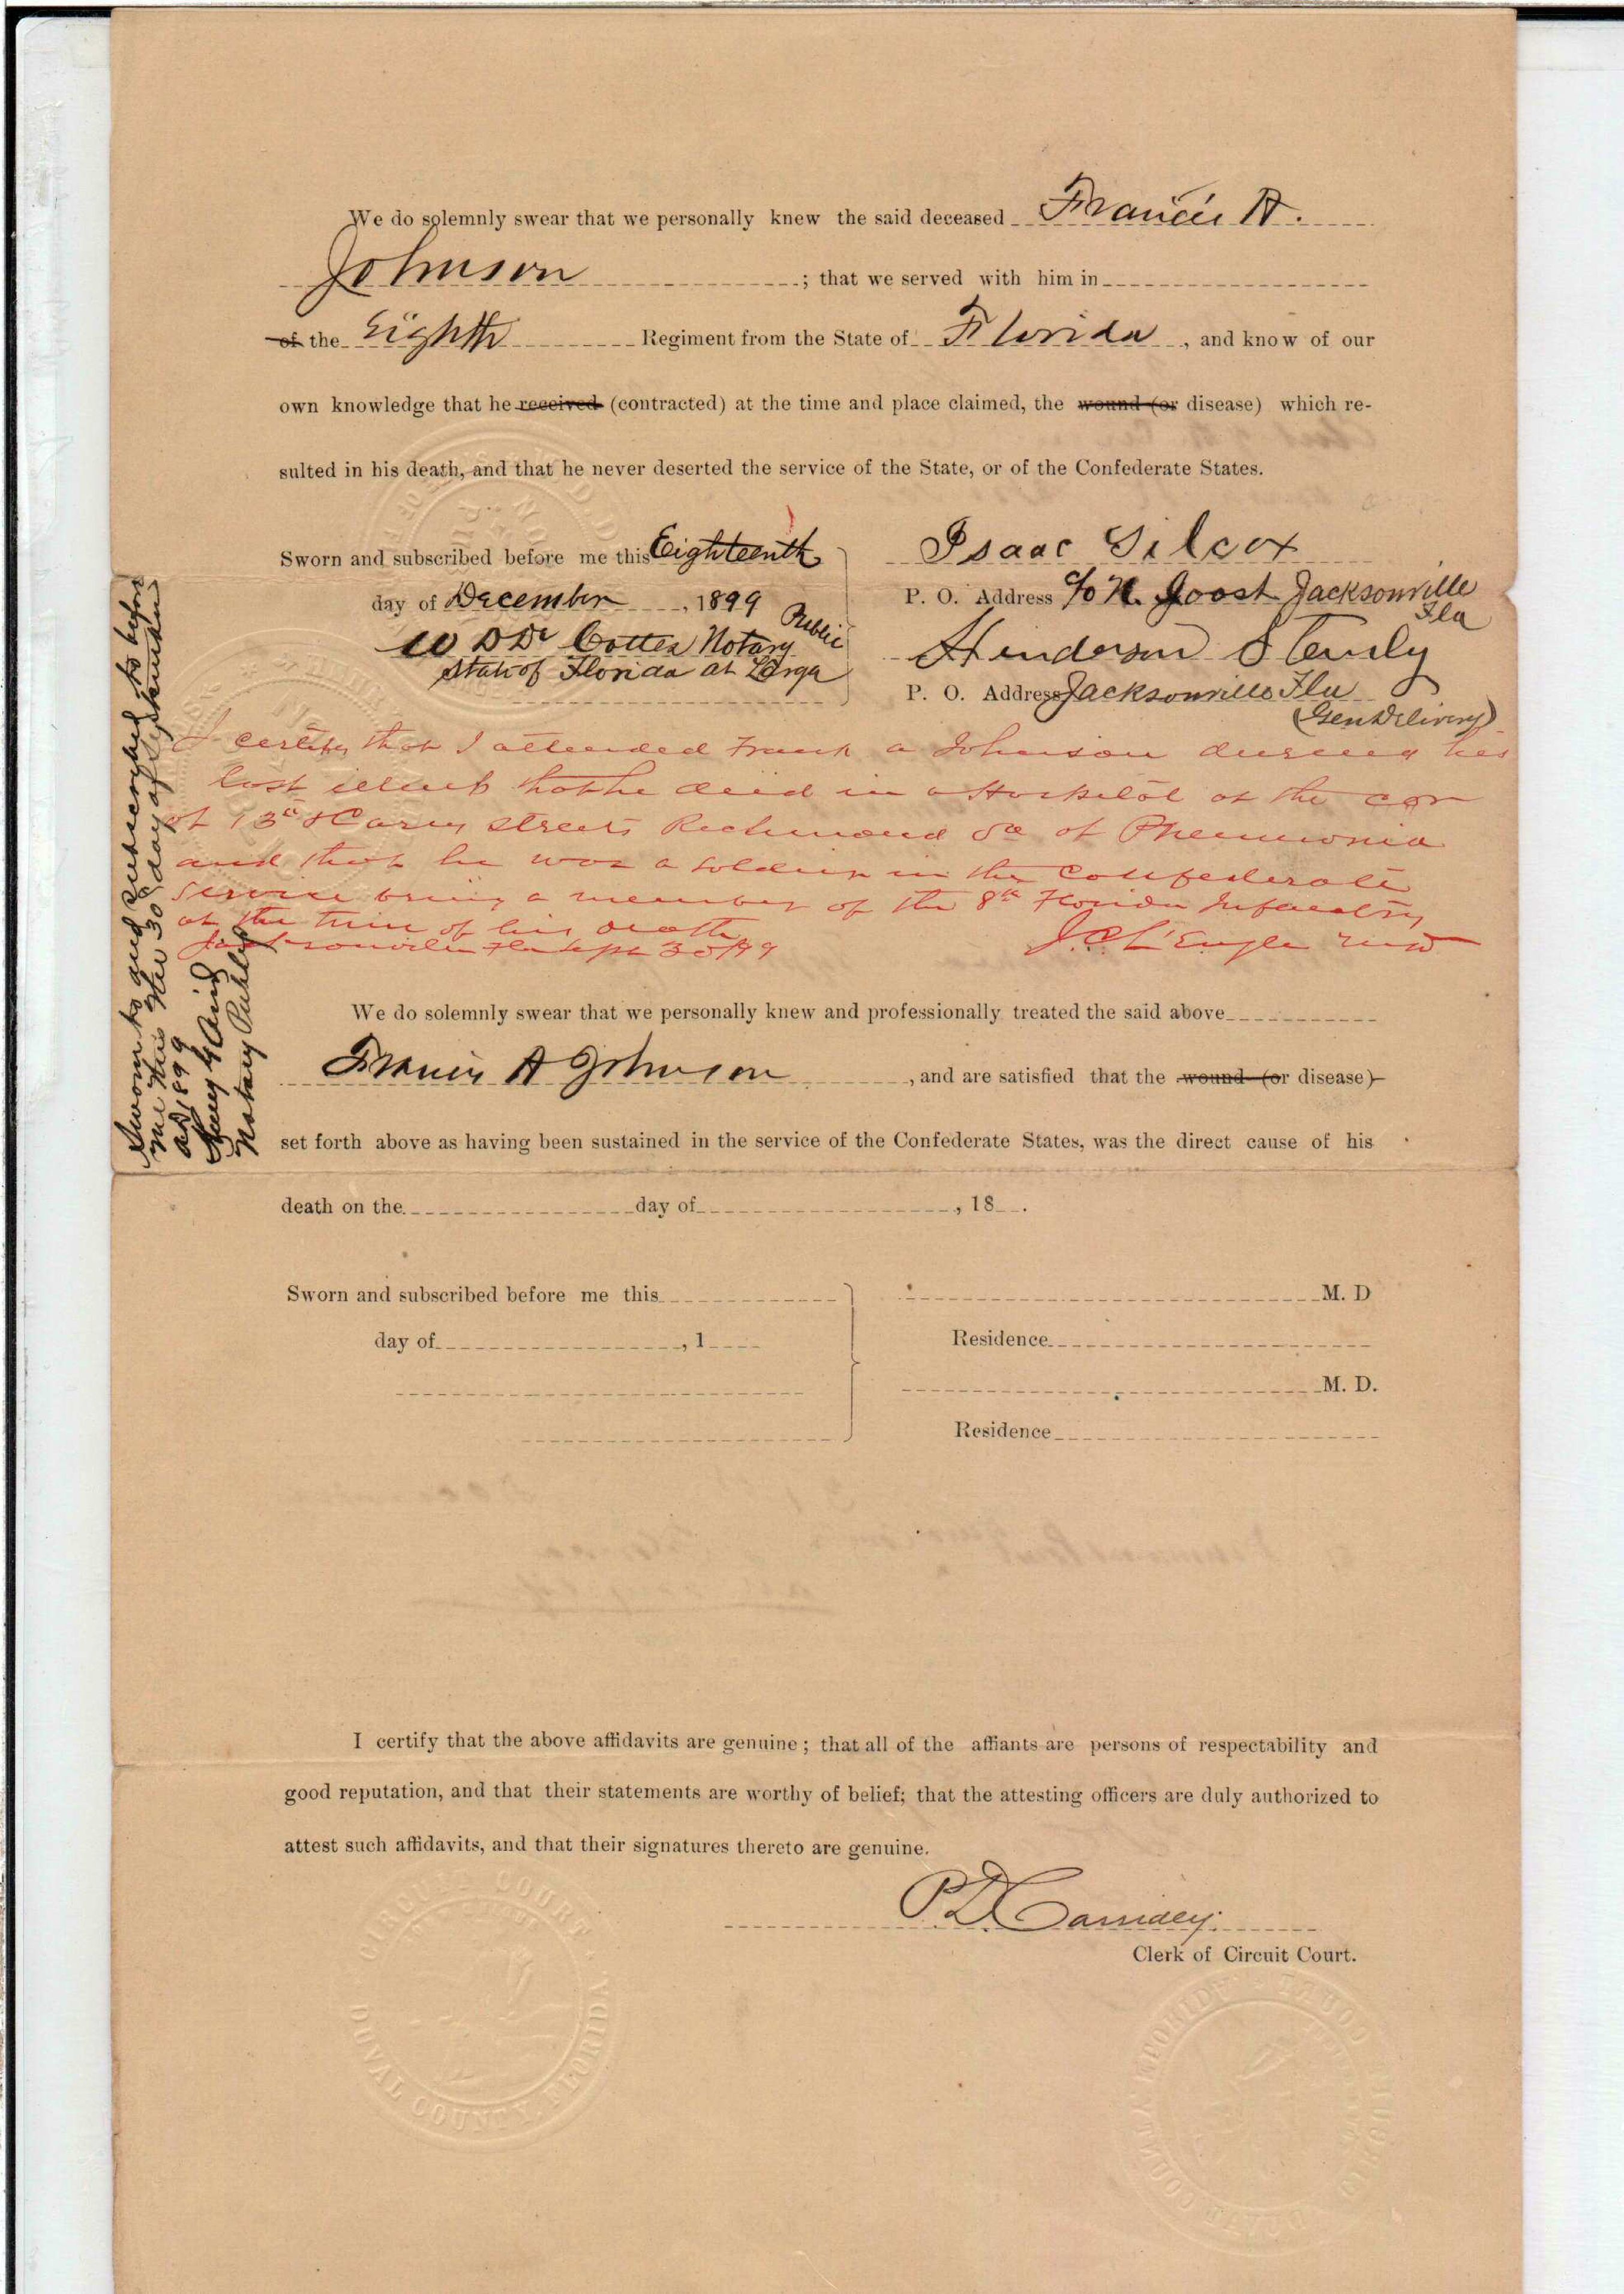 We do solemnly swear that we personally knew the said deceased Francis A.
Johnson ; that we served with him in
of the Eighth Regiment from the State of Florida , and know of our
own knowledge that he received (contracted) at the time and place claimed, the wound (or disease) which re-
sulted in his death, and that he never deserted the service of the State, or of the Confederate States.
Sworn and subscribed before me this Eighteenth
day of December , 1899
Notary Public
State of Florida at Large
Isaac Silcox
P. O. Address c/o H. Joost Jacksonville
Fla
Henderson Stanly
P. O. Address Jacksonville Fla
(Gen Delivery)
I certify that I attended Frank a Johnson during his
last illness that he died in a Hospital at the cor
of 13th & Carey streets Richmond Va of Pneumonia
and that he was a soldier in the Confederate
service being a member of the 8th Florida Infantry
at the time of his death
Jacksonville Fla Sept 30/99
J. C. L'Engle M D
Sworn to and subscribed to before
me this the 30 day of September
AD 1899
Notary Public
We do solemnly swear that we personally knew and professionally treated the said above
Francis A Johnson , and are satisfied that the wound (or disease)
set forth above as having been sustained in the service of the Confederate States, was the direct cause of his
death on the day of , 18 .
Sworn and subscribed before me this
day of , 1
M. D
Residence
M. D.
Residence
I certify that the above affidavits are genuine; that all of the affiants are persons of respectability and
good reputation, and that their statements are worthy of belief; that the attesting officers are duly authorized to
attest such affidavits, and that their signatures thereto are genuine.
P D Cassidey.
Clerk of Circuit Court.
CIRCUIT COURT
DUVAL COUNTY, FLORIDA